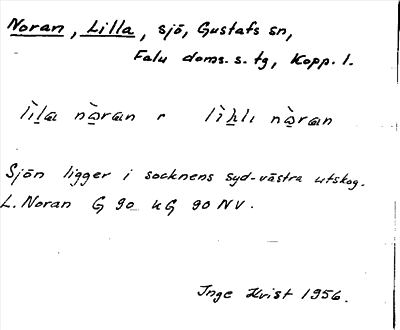 Noran, Lilla, sjö, Gustafs sn,
Falu doms. s. tg, Kopp. l.
lìla nàran r lìhlı nàran
Sjön ligger i socknens syd-västra utskog.
L. Noran G 90 kG 90 NV.
Inge Kvist 1956.